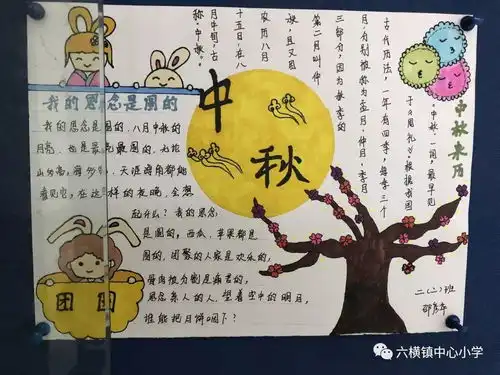 中秋来历
"中秋"一词,最早见
于《周礼》。根据我国
古代历法,一年有四季,每季三个
月,分别被称为孟月、仲月、季月
三部分,因为秋季的
第二月叫仲
秋,且又因
农历八月
十五日,在八
月中旬,古
称"中秋"。
中秋
我的思念是圆的
我的思念是圆的,八月中秋的
月亮,也是最亮最圆的,无论
山多高,海多宽,天涯海角都能
看见它,在这样的夜晚,会想
起什么?我的思念
是圆的,西瓜,苹果都是
圆的,团聚的人家是欢乐的,
骨肉被分割是痛苦的,
思念亲人的人,望着空中的明月,
谁能把月饼咽下?
团圆
二(二)班
六横镇中心小学